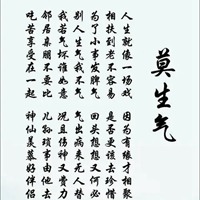 莫生气
人生就像一场戏
因为有缘才相聚
相扶到老不容易
是否更该去珍惜
为了小事发脾气
回头想想又何必
别人生气我不气
气出病来无人替
我若气坏谁如意
况且伤神又费力
邻居亲朋不要比
儿孙琐事由他去
吃苦享受在一起
神仙羡慕好伴侣